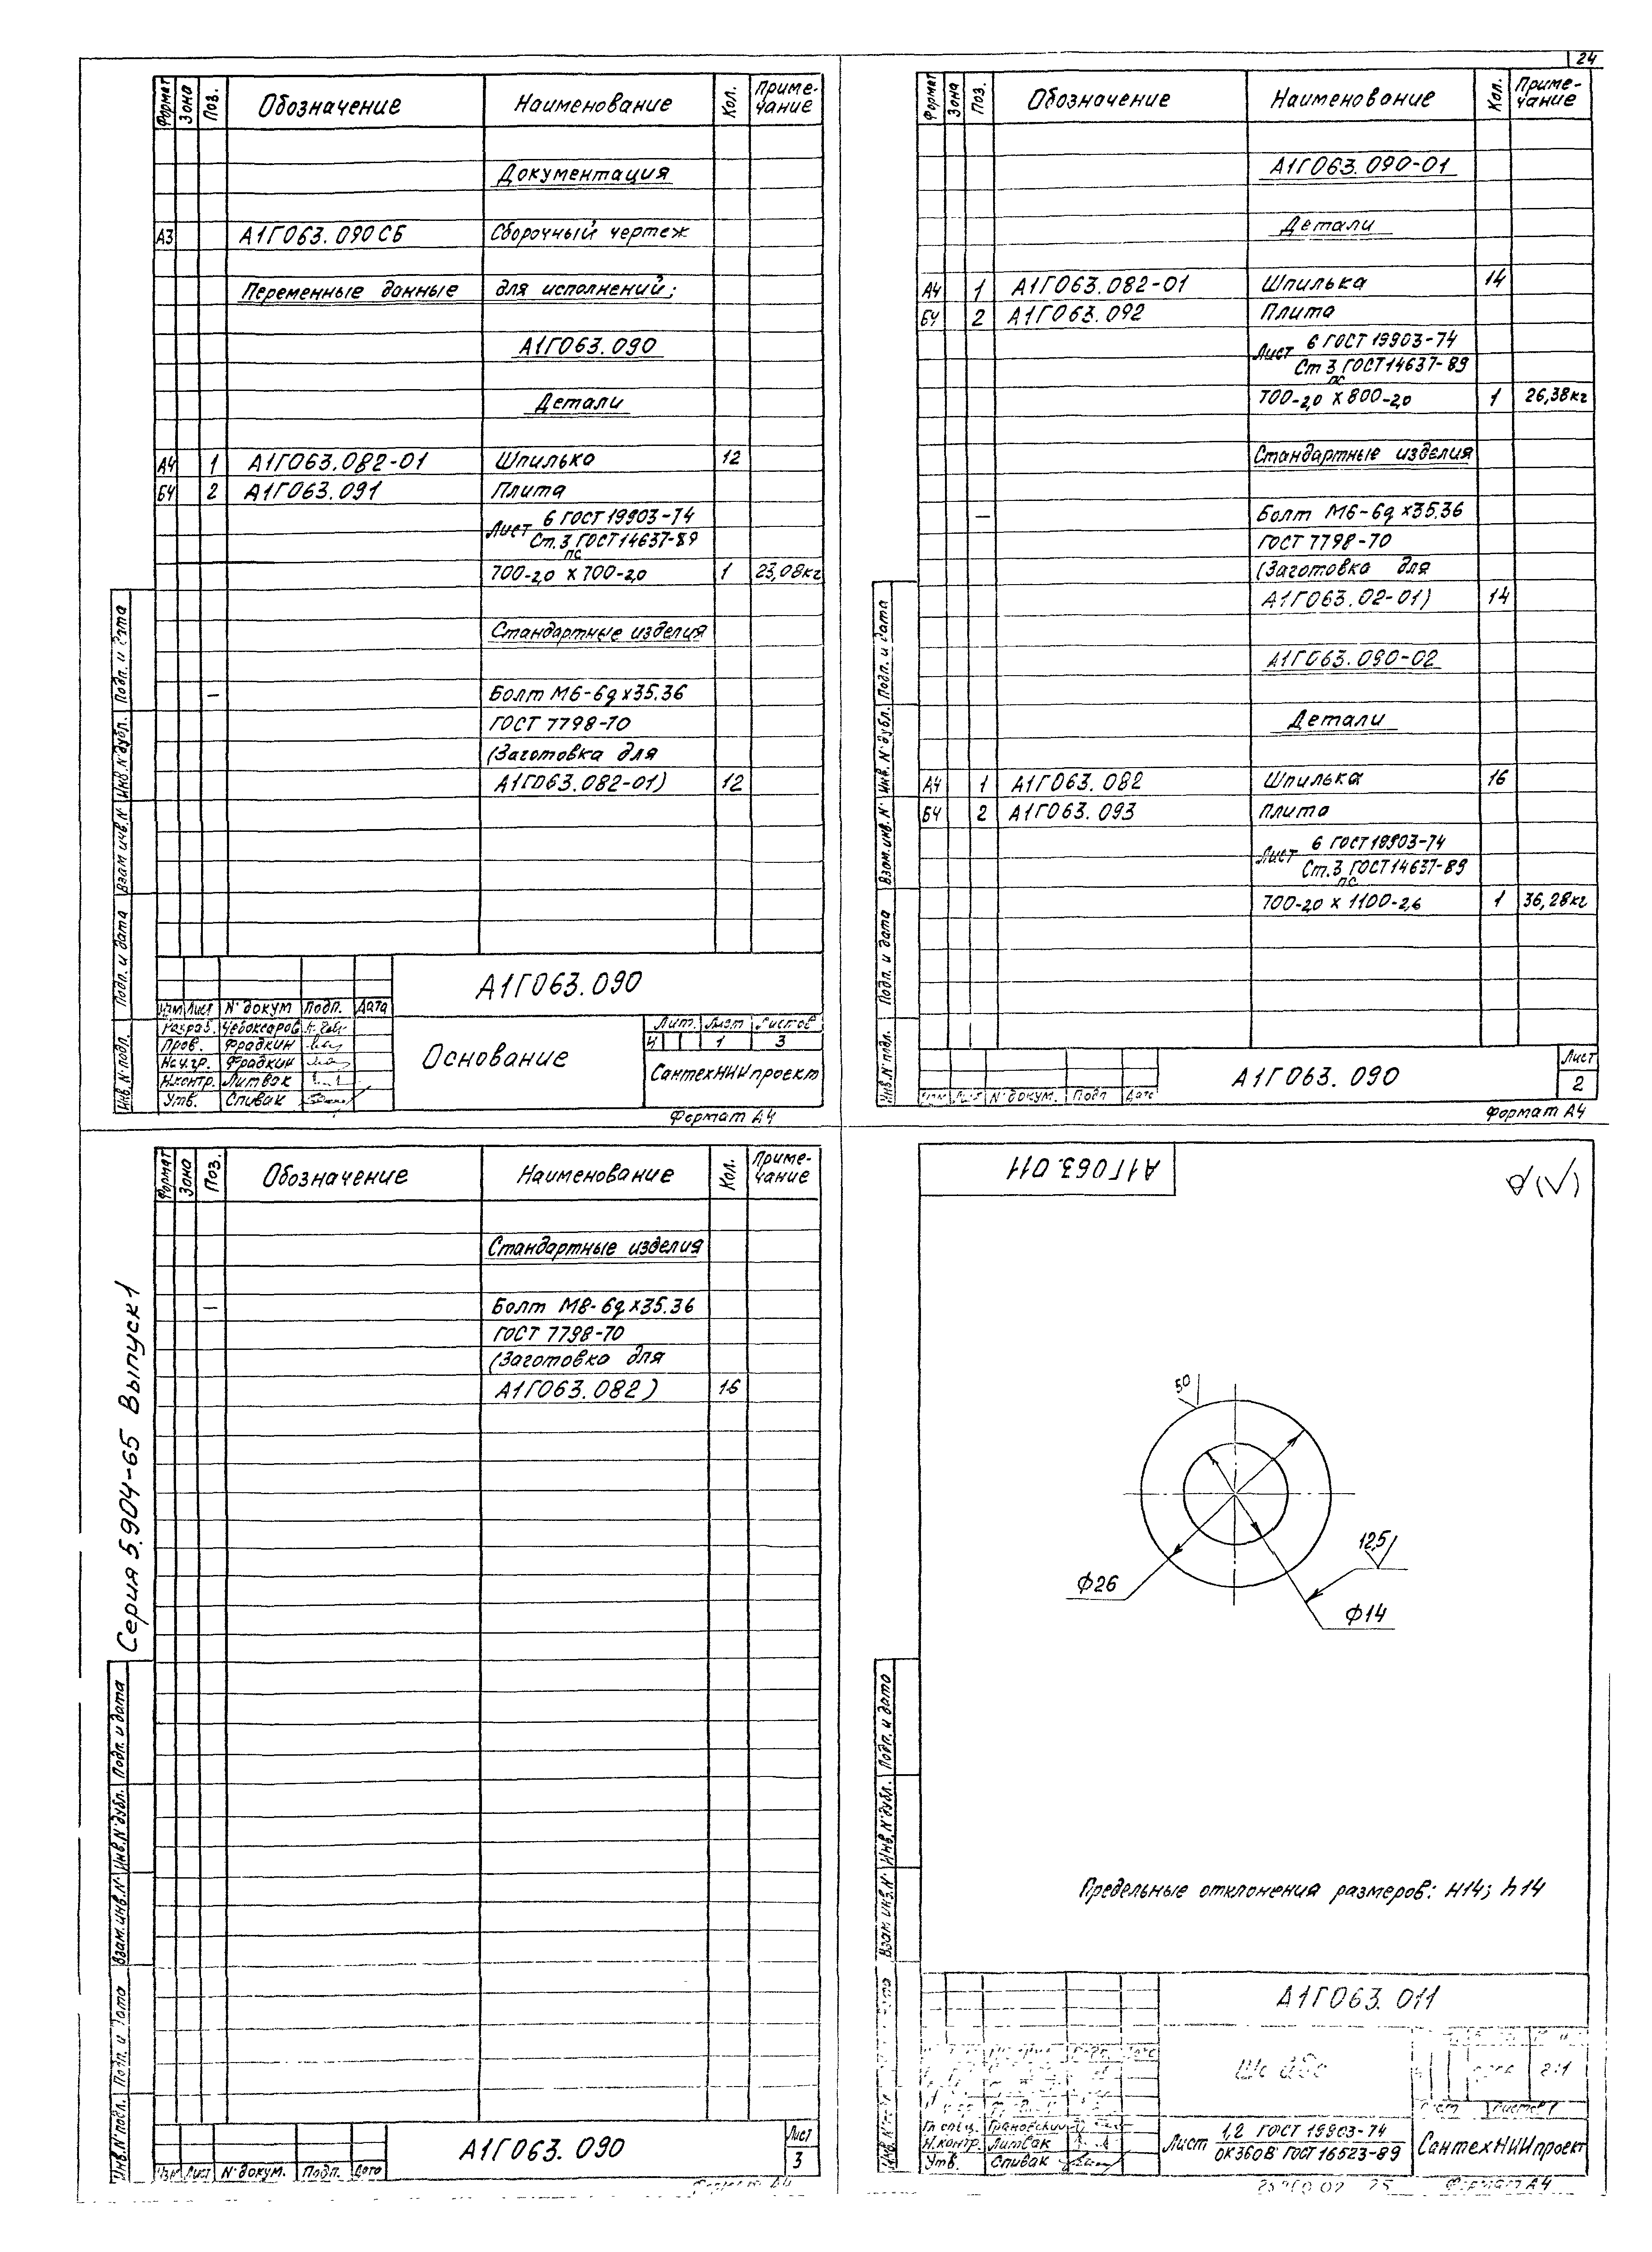 24
Формат Зона Поз. Обозначение Наименование Кол. Приме-чание
Документация
А3 А1Г063.090СБ Сборочный чертеж
Переменные данные для исполнений;
А1Г063.090
Детали
А4 1 А1Г063.082-01 Шпилька 12
БЧ 2 А1Г063.091 Плита
Лист 6 ГОСТ 19903-74
Ст.3 ГОСТ 14637-89
пс
700-2,0 х 700-2,0 1 23,08кг
Стандартные изделия
— Болт М6-6g х35.36
ГОСТ 7798-70
(Заготовка для
А1Г063.082-01) 12
Инв.N°подл. Подп. и дата Взам инв.N° Инв.N°дубл. Подп. и дата
Изм Лист N°докум Подп. Дата
Разраб. Чебоксаров
Пров. Фрадкин
Нач.гр. Фрадкин
Н.контр. Литвак
Утв. Спивак
А1Г063.090
Основание
Лит. Лист Листов
И 1 3
СантехНИИпроект
Формат А4
Формат Зона Поз. Обозначение Наименование Кол. Приме-чание
А1Г063.090-01
Детали
А4 1 А1Г063.082-01 Шпилька 14
БЧ 2 А1Г063.092 Плита
Лист 6 ГОСТ 19903-74
Ст 3 ГОСТ 14637-89
пс
700-2,0 х 800-2,0 1 26,38кг
Стандартные изделия
— Болт М6-6g х35.36
ГОСТ 7798-70
(Заготовка для
А1Г063.02-01) 14
А1Г063.090-02
Детали
А4 1 А1Г063.082 Шпилька 16
БЧ 2 А1Г063.093 Плита
Лист 6 ГОСТ 19903-74
Ст.3 ГОСТ 14637-89
пс
700-2,0 х 1100-2,6 1 36,28кг
Инв.N°подл. Подп. и дата Взам.инв.N° Инв.N°дубл. Подп. и дата
Изм Лист N°докум. Подп Дата
А1Г063.090
Лист
2
Формат А4
Серия 5.904-65 Выпуск 1
Формат Зона Поз. Обозначение Наименование Кол. Приме-чание
Стандартные изделия
— Болт М8-6g х35.36
ГОСТ 7798-70
(Заготовка для
А1Г063.082) 16
Инв.N°подл. Подп. и дата Взам.инв.N° Инв.N°дубл. Подп. и дата
Изм Лист N°докум. Подп. Дата
А1Г063.090
Лист
3
Формат А4
А1Г063.011
50
12,5
Ф26
Ф14
Предельные отклонения размеров: H14; h14
Взам.инв.N° Инв.N°дубл. Подп. и дата
А1Г063.011
2:1
Гл спец. Грановский
Н.контр. Литвак
Утв. Спивак
Лист 1,2 ГОСТ 19903-74
ОК360В ГОСТ 16523-89
СантехНИИпроект
Формат А4